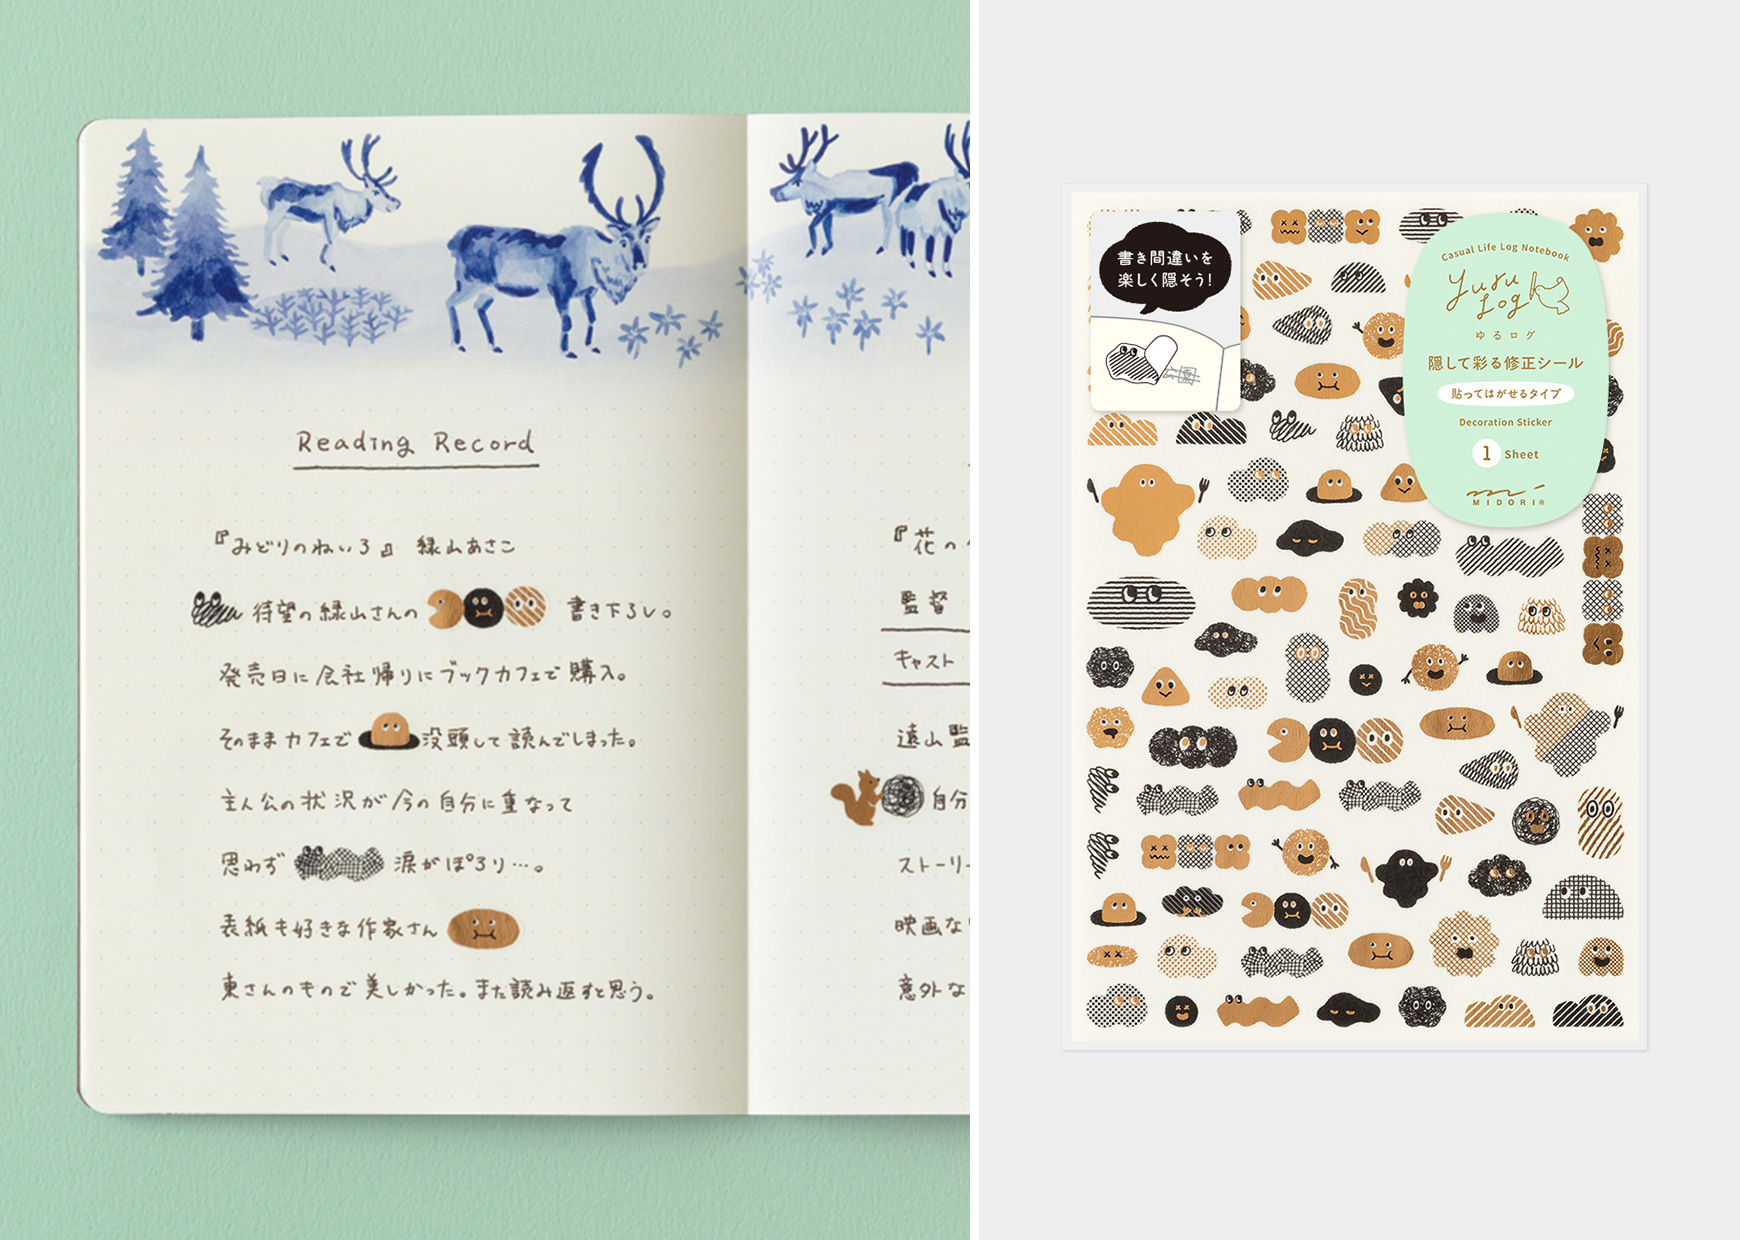 Reading Record
『みどりのねいろ』 緑山あさこ
待望の緑山さんの 書き下ろし。
発売日に会社帰りにブックカフェで購入。
そのままカフェで 没頭して読んでしまった。
主人公の状況が今の自分に重なって
思わず 涙がぽろり…。
表紙も好きな作家さん
東さんのもので美しかった。また読み返すと思う。
『花の
監督
キャスト
遠山監
自分
ストーリー
映画な
意外な
書き間違いを
楽しく隠そう!
公園
Casual Life Log Notebook
yuru log
ゆるログ
隠して彩る修正シール
貼ってはがせるタイプ
Decoration Sticker
1 Sheet
MIDORI®